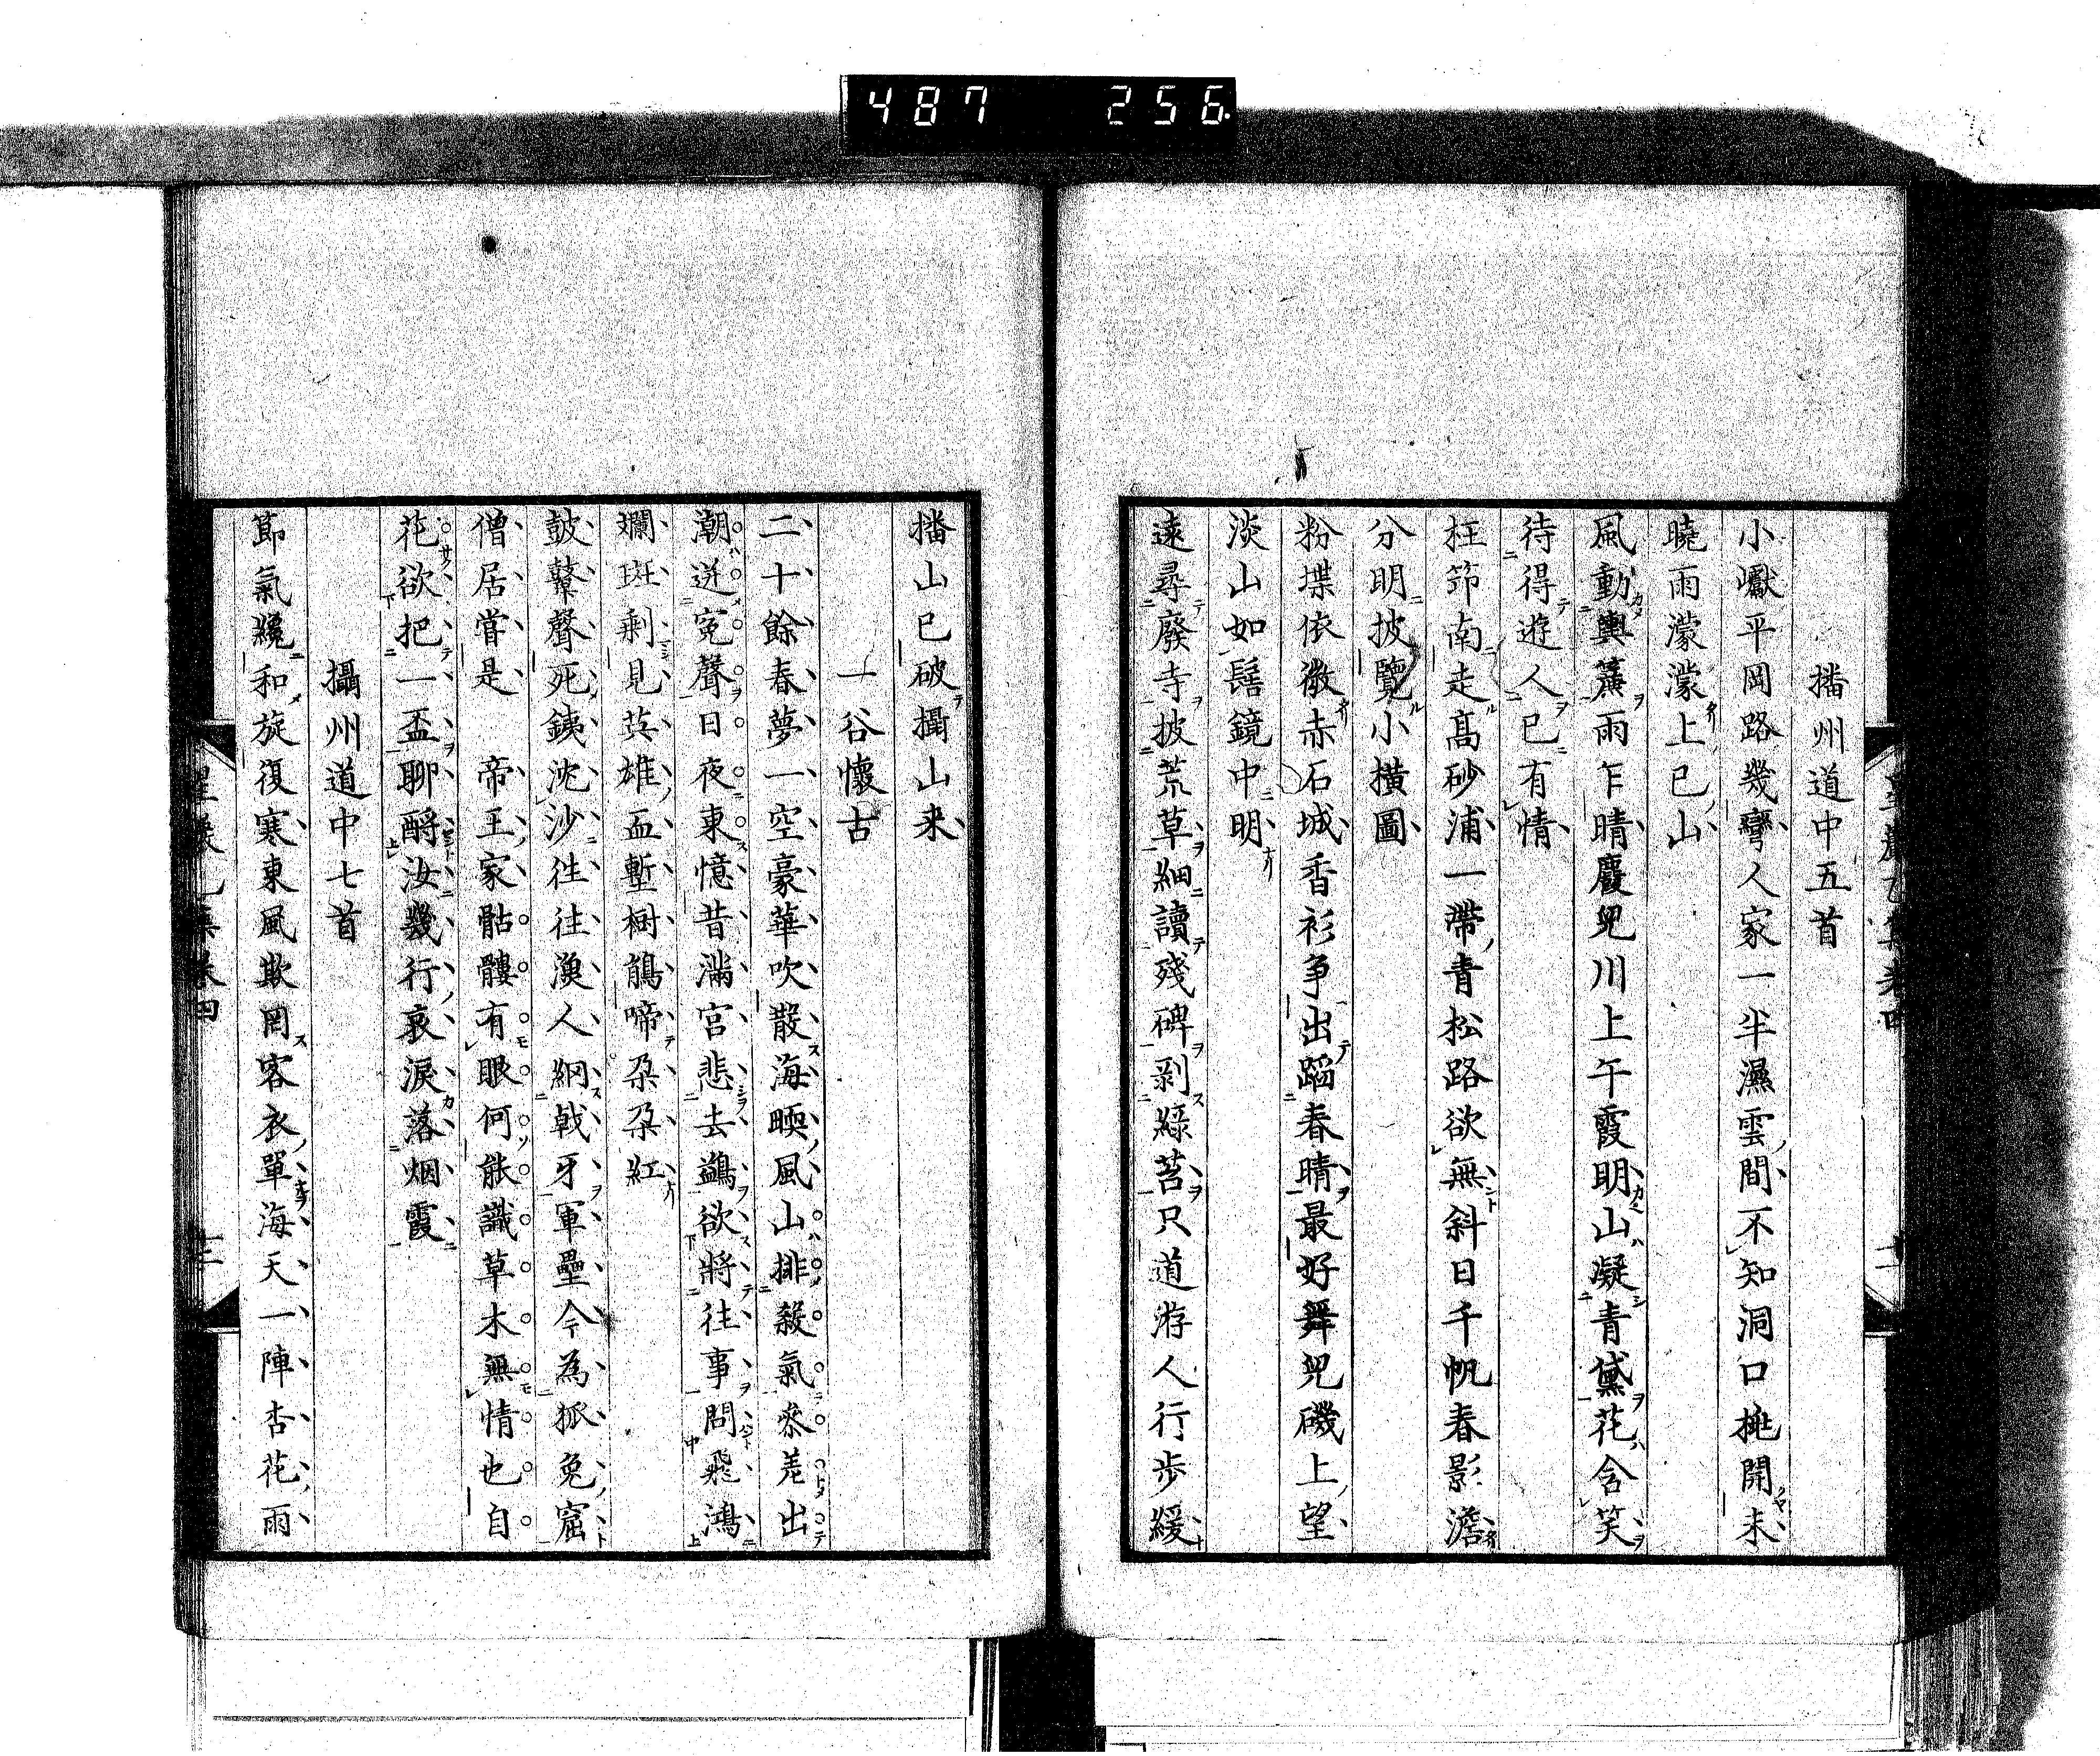 487 256
播州道中五首
小巘平岡路幾彎人家一半濕雲間不知洞口桃開未
曉雨濛濛上巳山
風動輿簾雨乍晴麑兒川上午霞明山凝青黛花含笑
待得遊人已有情
枉笻南走高砂浦一帶青松路欲無斜日千帆春影澹
分明披覽小橫圖
粉堞依微赤石城香衫爭出蹈春晴最好舞兒磯上望
淡山如髻鏡中明
遠尋廢寺披荒草細讀殘碑剥綠苔只道游人行步緩
播山已破攝山来
一谷懷古
二十餘春夢一空豪華吹散海䁔風山排殺氣參差出
潮迸冤聲日夜東憶昔滿宮悲去鷁欲將往事問飛鴻
斕斑剩見英雄血塹樹鵑啼朶朶紅
鼓鼙聲死銕沈沙往往漁人網戟牙軍壘今為狐兔窟
僧居嘗是 帝王家骷髏有眼何能識草木無情也自
花欲把一盃聊酹汝幾行哀淚落烟霞
攝州道中七首
節氣纔和旋復寒東風欺罔客衣單海天一陣杏花雨